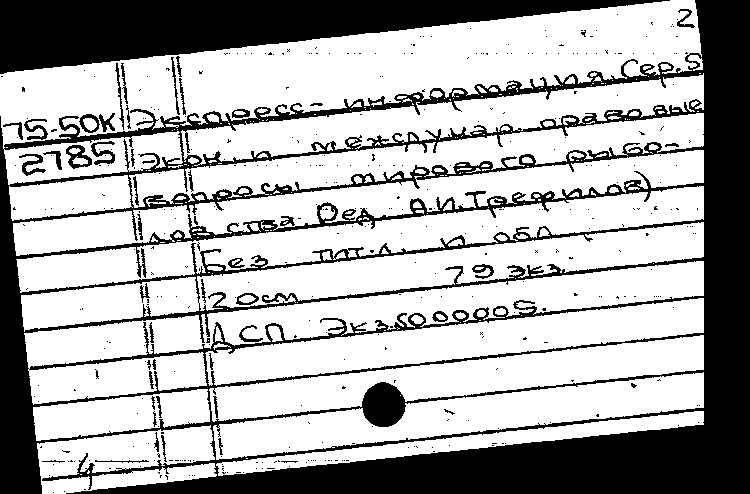 2
75-50К Экспресс-информация. Сер. 5
2785 Экон. и междунар. правовые
вопросы мирового рыбо-
ловства. (Ред. А.И. Трефилов).
Без тит. л. и обл.
20см 79 экз.
ДСП. Экз. 500000S.
4